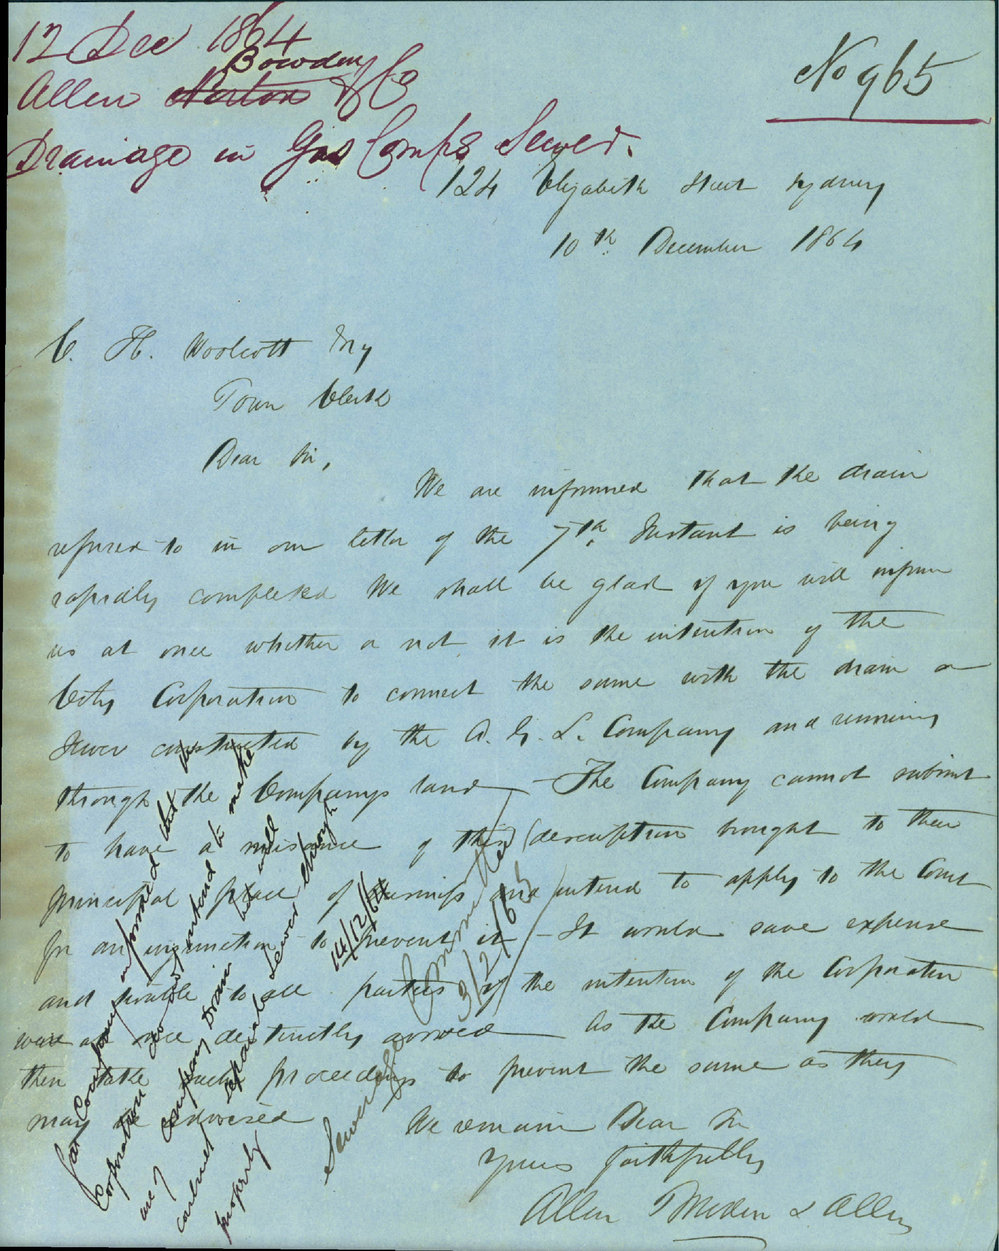 12 Dec 1864
Bowden
Allen Norton & Co
Drainage in Gas Comps Sewer.
No 965
124 Elizabeth Street Sydney
10th December 1864
C. H. Woolcott Esq
Town Clerk
Dear Sir,
We are informed that the drain
referred to in our letter of the 7th Instant is being
rapidly completed We shall be glad if you will inform
us at once whether or not it is the intention of the
City Corporation to connect the same with the drain or
Sewer constructed by the A. G. L. Company and running
through the Companys land — The Company cannot submit
to have a nuisance of this description brought to their
principal place of business and intend to apply to the Court
for an injunction to prevent it — It would save expense
and trouble to all parties if the intention of the Corporation
were at once distinctly avowed as the Company would
then take such proceedings to prevent the same as they
may be advised
We remain Dear Sir
Yours faithfully
Allen Bowden & Allen
Gas Company informed that the
Corporation do not intend to make
use of Company drain but will
construct separate Sewer through
property
14/12/64
Sewerage Committee
3/2/65